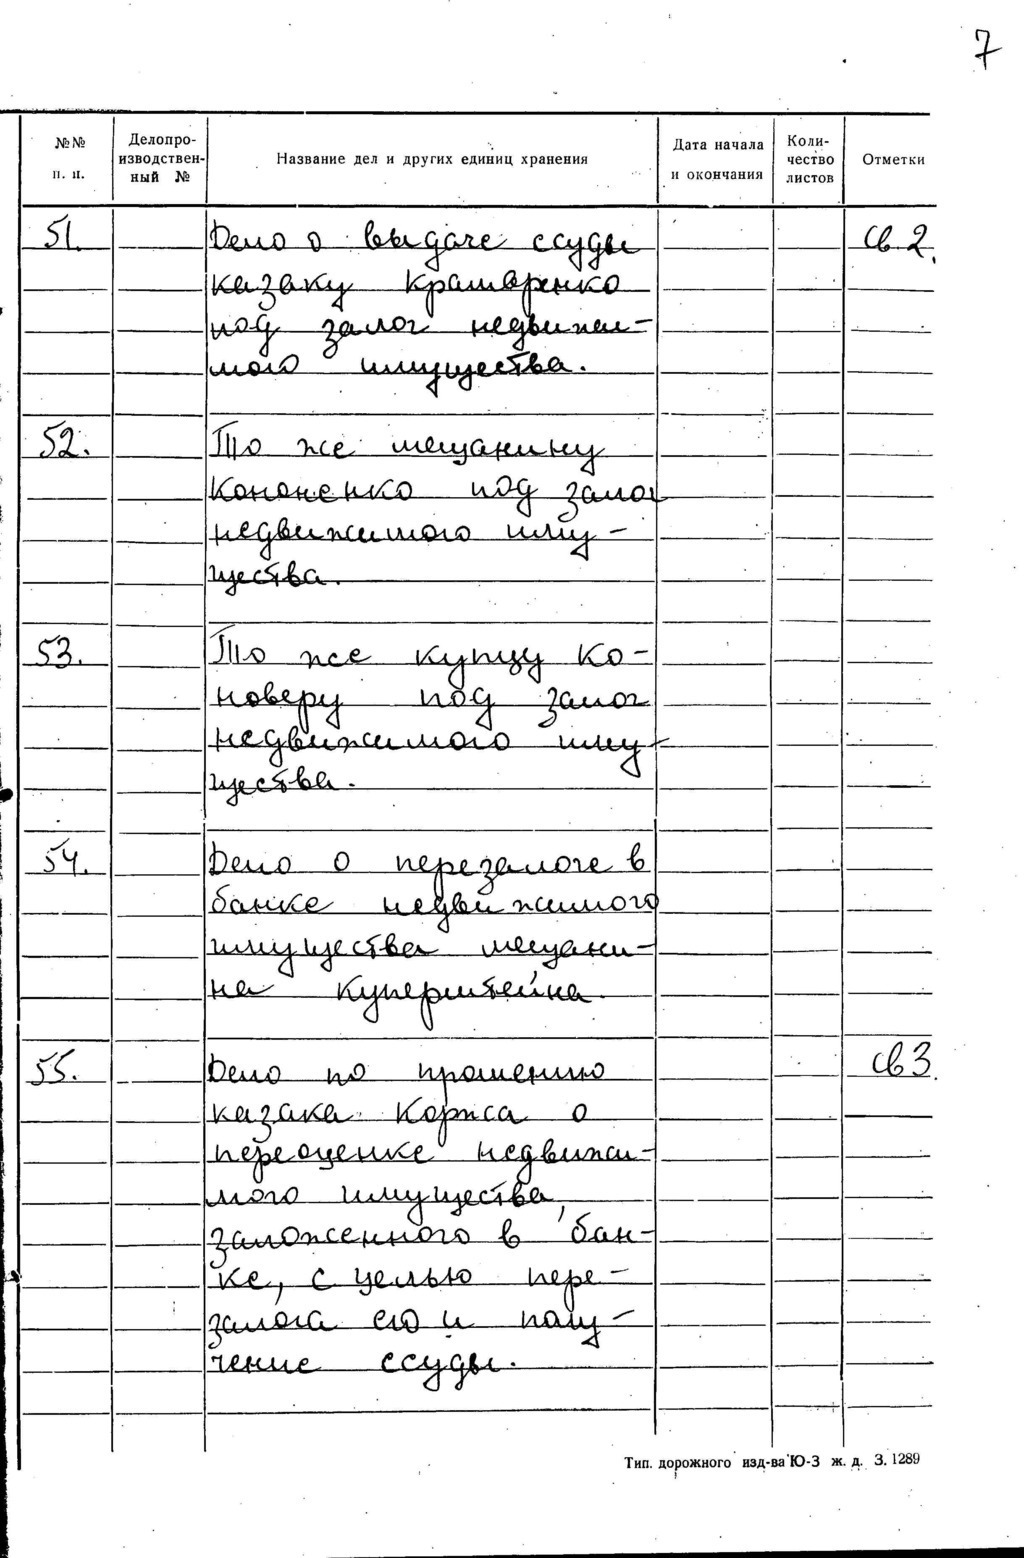 7
№№ п. п.
Делопроизводственный №
Название дел и других единиц хранения
Дата начала и окончания
Количество листов
Отметки
51. Дело о выдаче ссуды св 2.
казаку Крамаренко
под залог недвижи-
мого имущества.
52. То же мещанину
Кононенко под залог
недвижимого иму-
щества.
53. То же купцу Ко-
новеру под залог
недвижимого иму-
щества.
54. Дело о перезалоге в
банке недвижимого
имущества мещани-
на Куперштейна.
55. Дело по прошению св 3.
казака Коржа о
переоценке недвижи-
мого имущества,
заложенного в бан-
ке, с целью пере-
залога его и полу-
чение ссуды.
Тип. дорожного изд-ва Ю-З ж. д. З. 1289